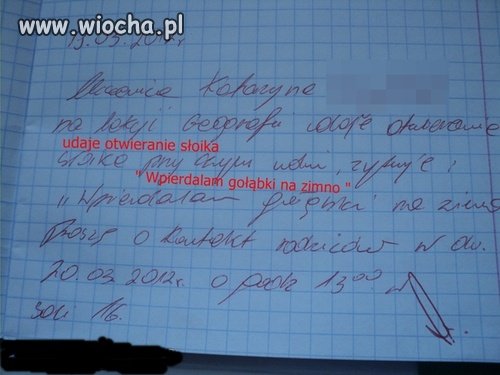 www.wiocha.pl
19.03.2012r
Uczennica Katarzyna
na lekcji Geografii udaje otwieranie
udaje otwieranie słoika
słoika przy czym
" Wpierdalam gołąbki na zimno "
"Wpierdalam gołąbki na zimno
Proszę o kontakt rodziców w dn.
20.03.2012r. o godz 13 00 w
sali 16.